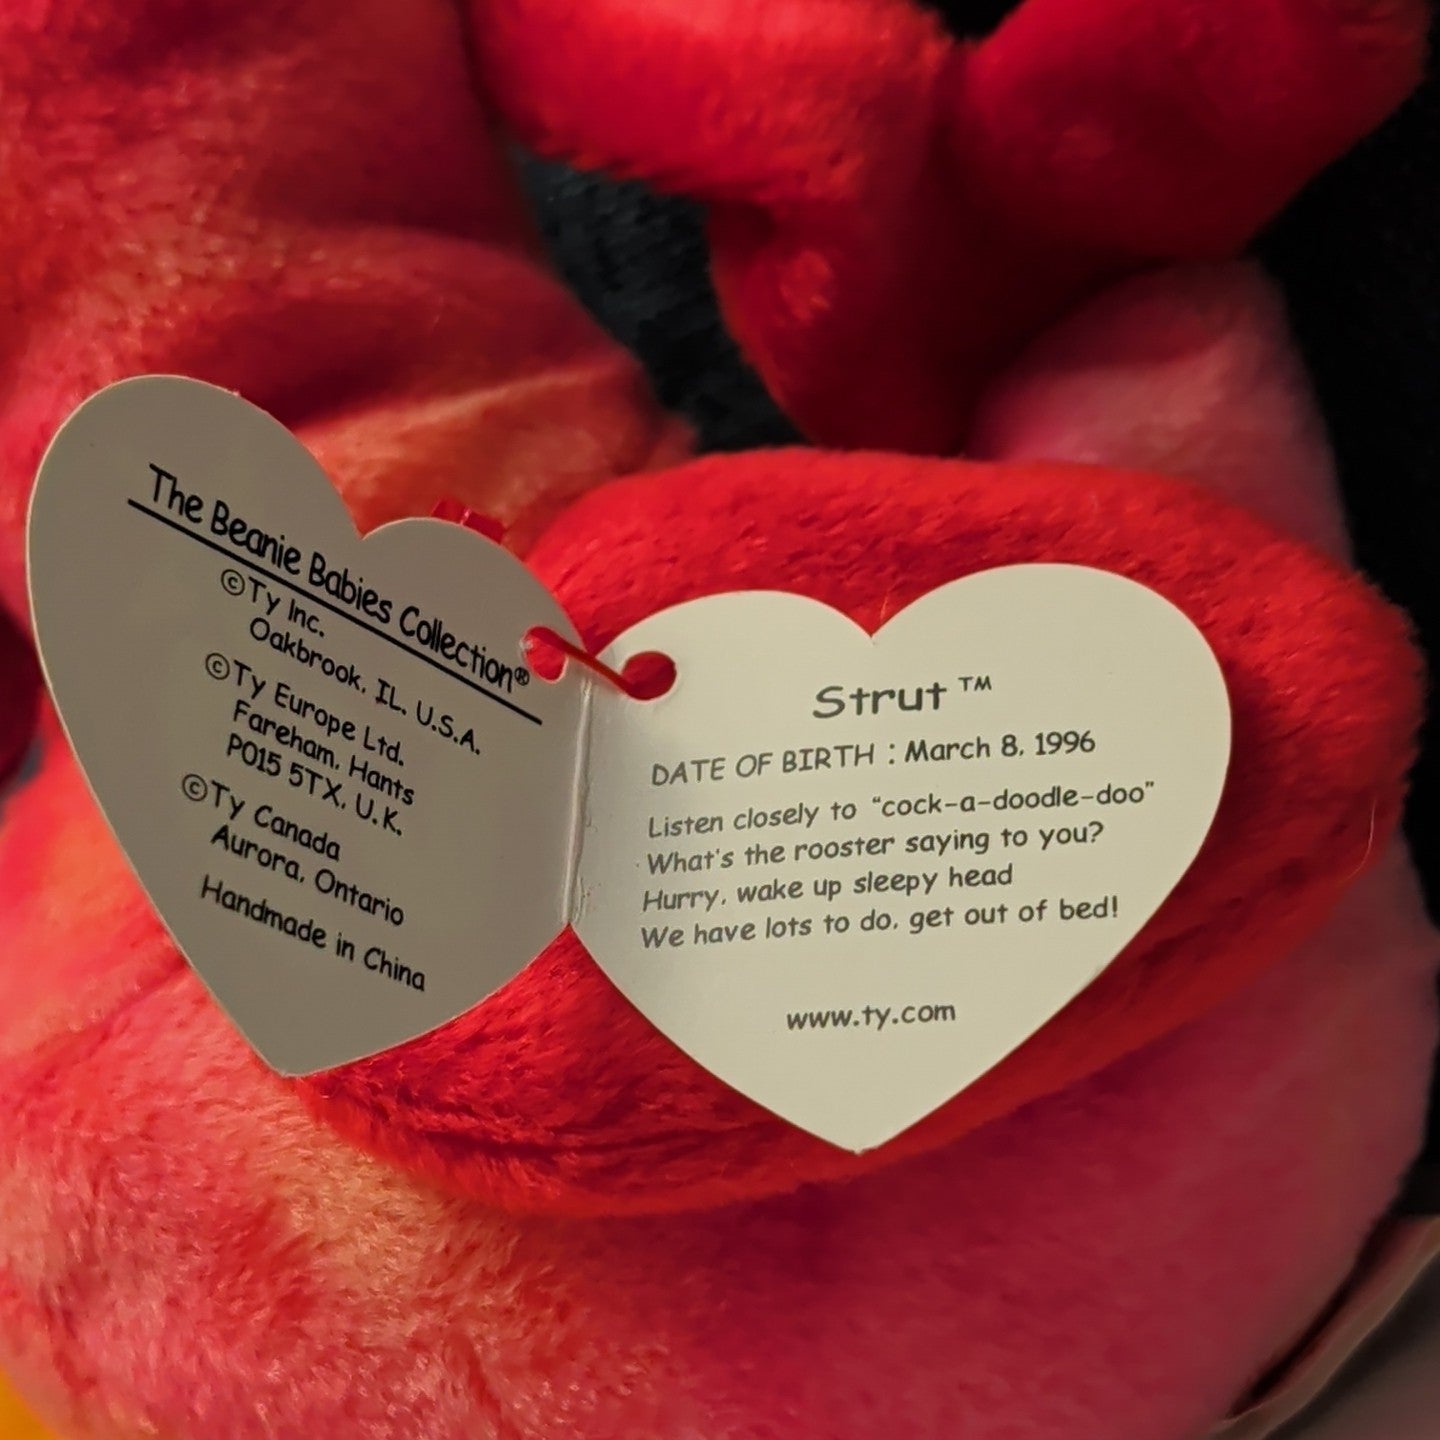 The Beanie Babies Collection®
©Ty Inc.
Oakbrook, IL, U.S.A.
©Ty Europe Ltd.
Fareham, Hants
PO15 5TX, U.K.
©Ty Canada
Aurora, Ontario
Handmade in China
Strut™
DATE OF BIRTH : March 8, 1996
Listen closely to "cock-a-doodle-doo"
What's the rooster saying to you?
Hurry, wake up sleepy head
We have lots to do, get out of bed!
www.ty.com